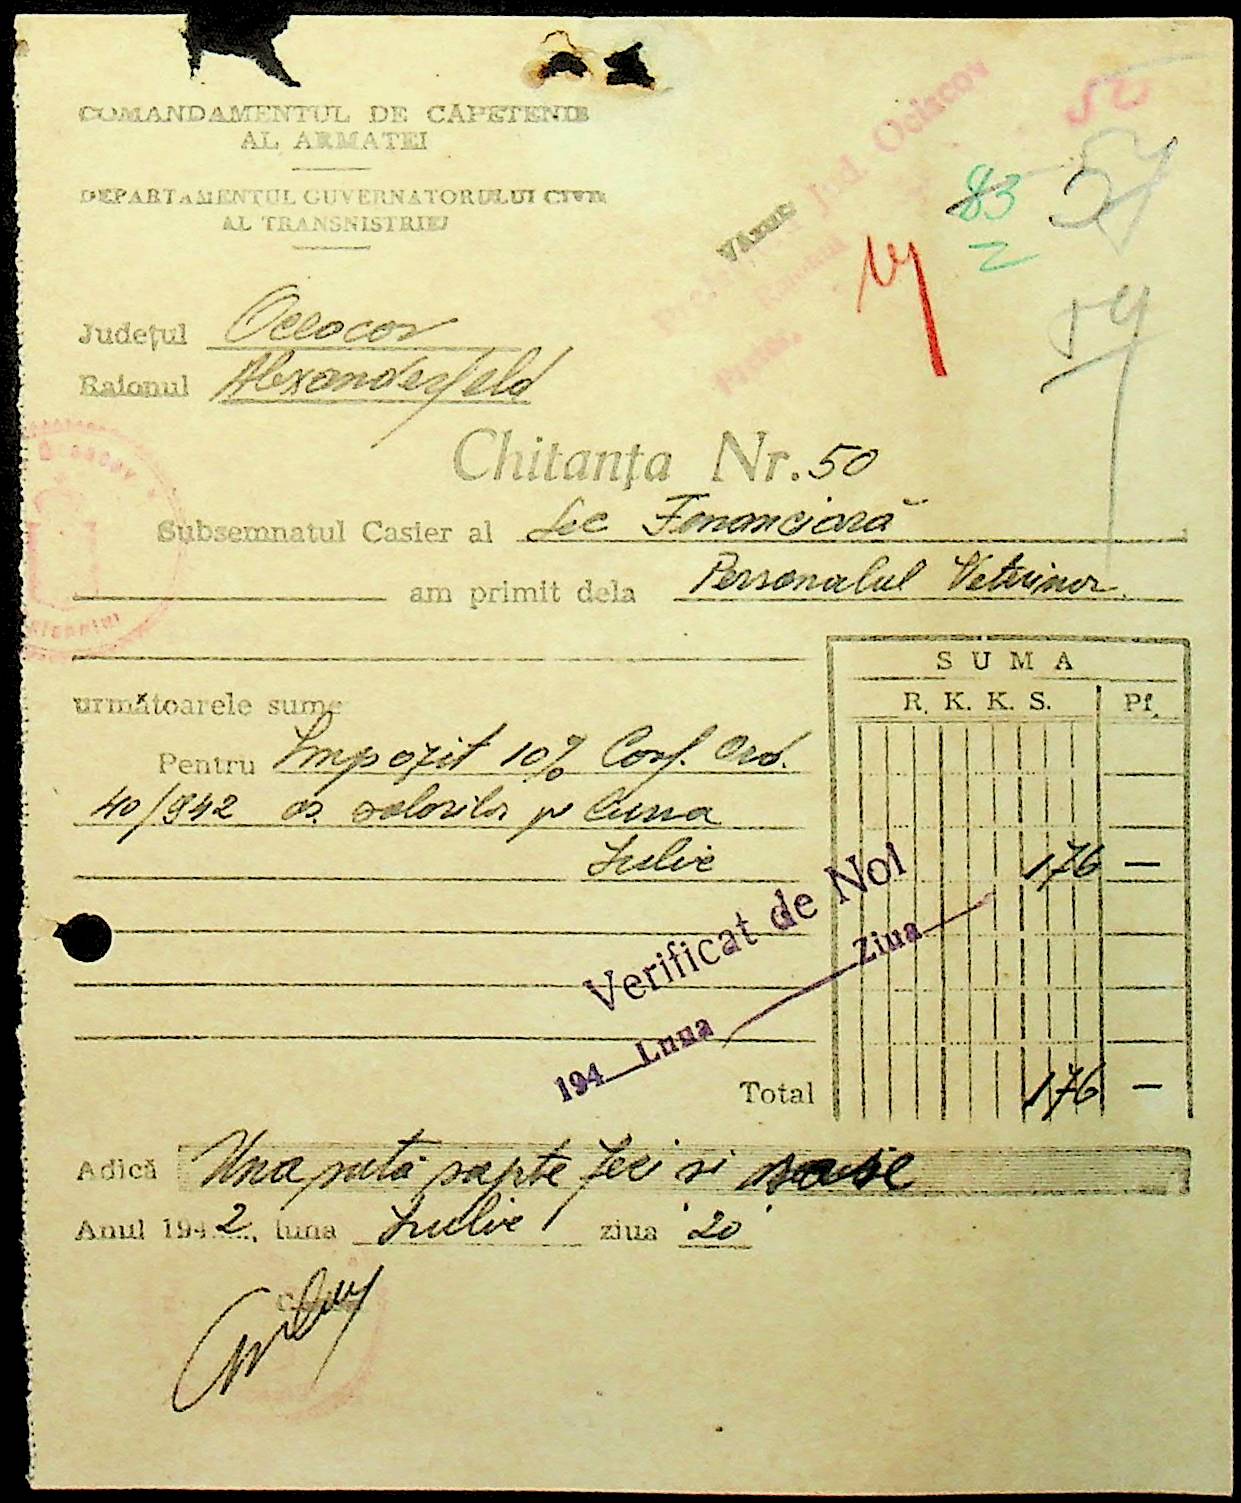 COMANDAMENTUL DE CAPETENIE
AL ARMATEI
DEPARTAMENTUL GUVERNATORULUI CIVIL
AL TRANSNISTRIEI
Jud. Ociacov
Văzut
83
54
54
Județul Oceacov
Raionul Alexanderfeld
Chitanța Nr. 50
Subsemnatul Casier al Sec Financiară
am primit dela Personalul Veterinar
SUMA
R. K. K. S. Pf.
următoarele sume
Pentru Impozit 10% Conf. Ord.
40/942 as. salorilor pe luna
Iulie 176 —
Verificat de Noi
194 Luna Ziua
Total 176 —
Adică Una sută șapte zeci si sase
Anul 1942, luna Iulie ziua 20